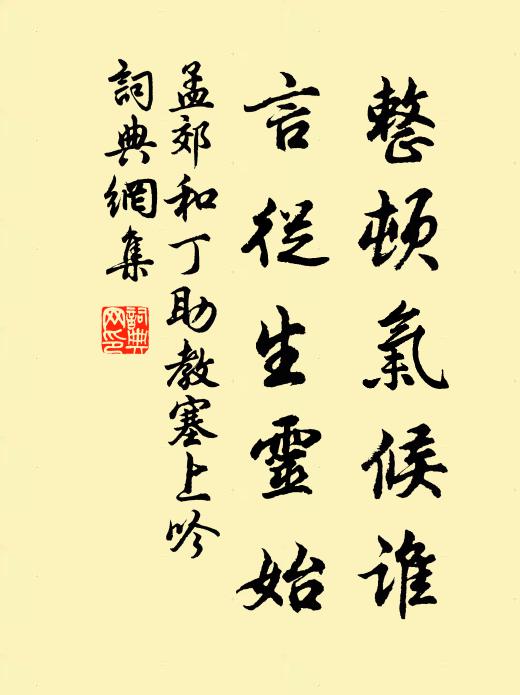 整頓氣候誰
言從生靈始
孟郊和丁助教塞上吟
詞典網集
詞典
网印